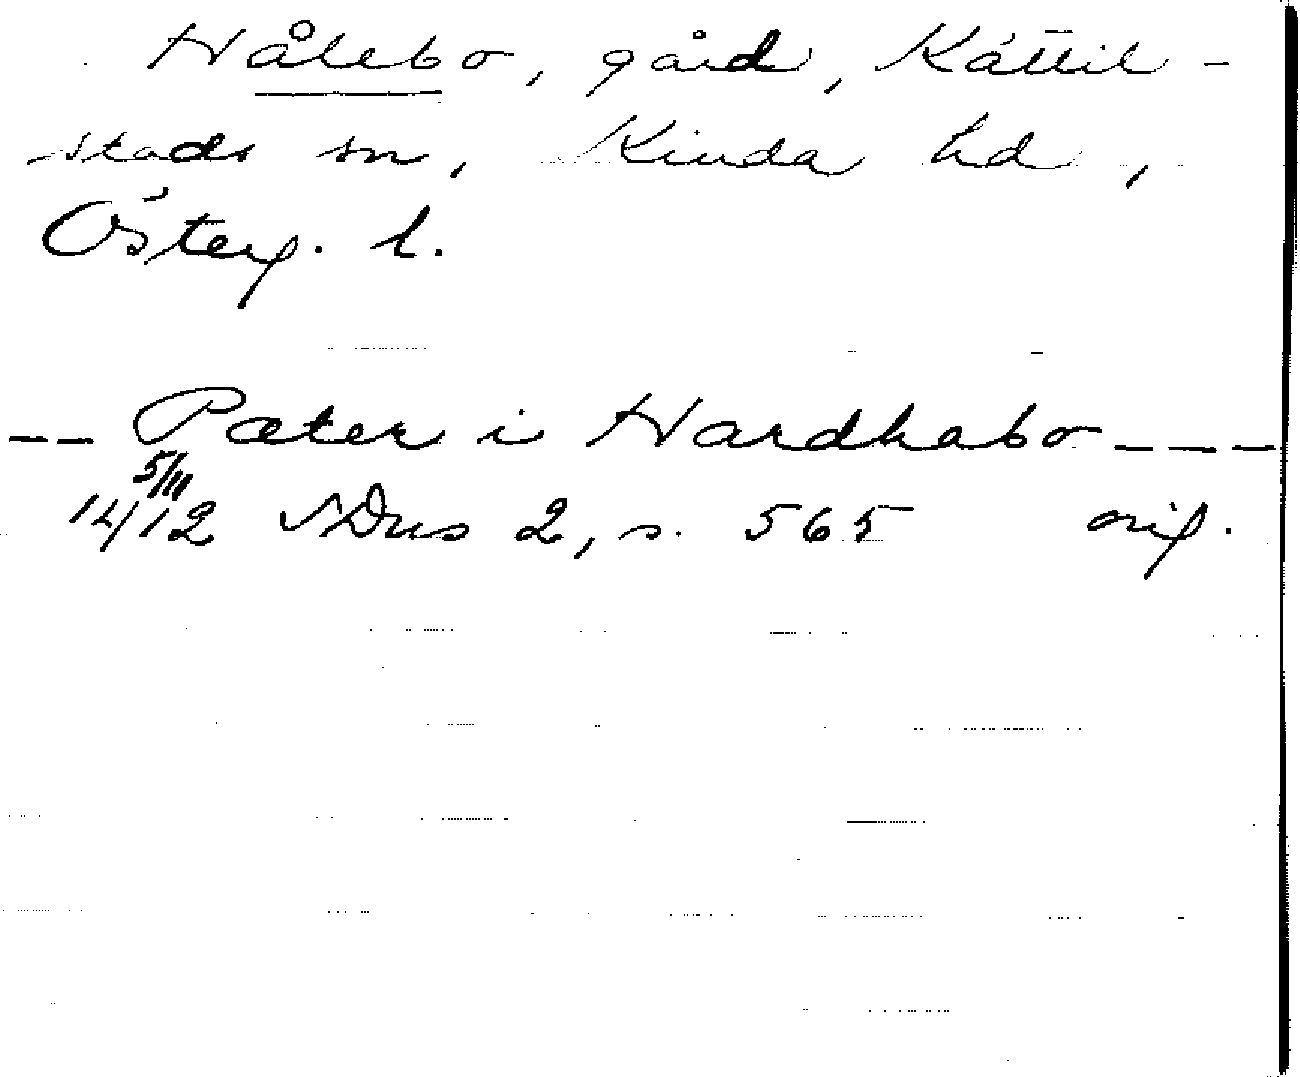 Hålebo, gård, Kättil-
stads sn, Kinda hd,
Österg. l.
-- Pæter i Hardhabo ---
5/III
1412 SDns 2, s. 565 orig.